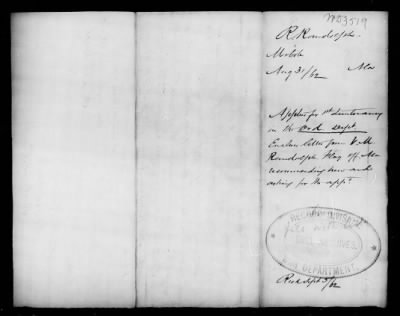 R. Randolph.
Mobile
Aug 31/62 Ala
Applies for 1st Lieutenancy
in the Ord. Dept
Encloses letter from V. M.
Randolph Flag off. Ala
recommending him and
asking for the appt
RECORD DIVISION
ARCHIVES.
WAR DEPARTMENT.
Recd Sept 5/62